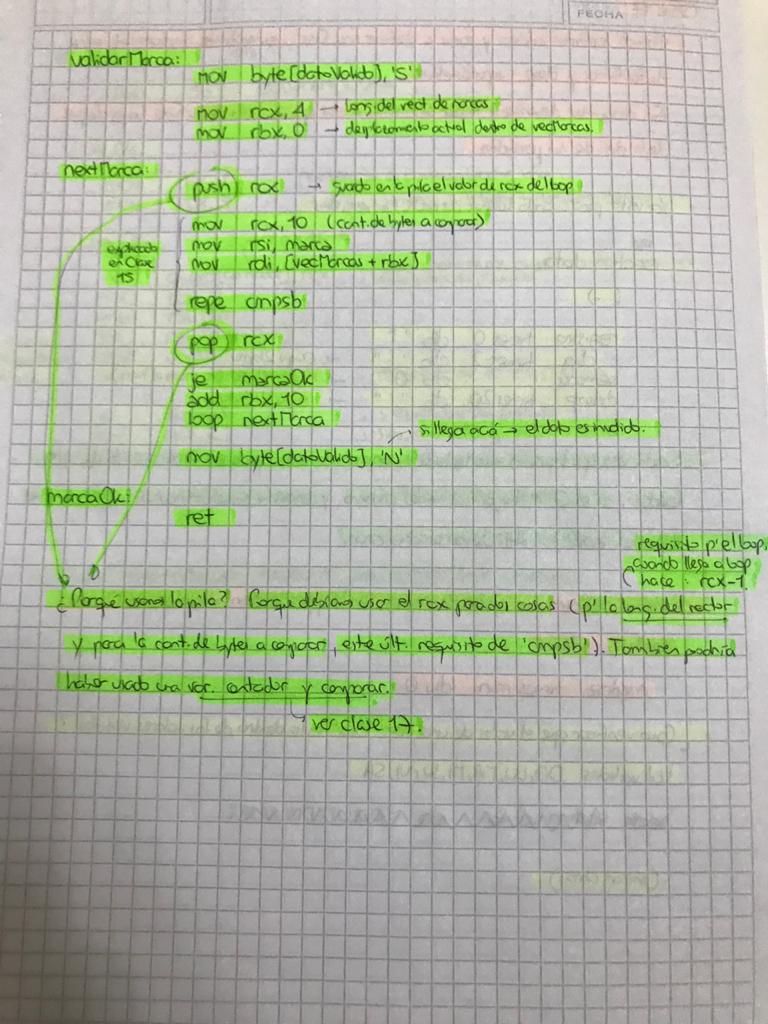 FECHA
validarMarca:
mov byte[datoValido], 'S'
mov rcx, 4 → long. del vect. de marcas
mov rbx, 0 → desplazamiento actual dentro de vecMarcas.
nextMarca:
push rcx → guardo en la pila el valor de rcx del loop
mov rcx, 10 (cant. de bytes a comparar)
mov rsi, marca
mov rdi, [vecMarcas + rbx]
explicado
en Clase
15
repe cmpsb
pop rcx
je marcaOk
add rbx, 10
loop nextMarca
si llega acá → el dato es inválido.
mov byte[datoValido], 'N'
marcaOk:
ret
requisito p' el loop.
cuando llega a loop
hace: rcx-1.
¿Porqué usamos la pila? Porque debíamos usar el rcx para dos cosas (p' la long. del vector
y para la cant. de bytes a comparar, este últ. requisito de 'cmpsb'). Tambien podría
haber usado una var. contador y comparar.
ver clase 17.